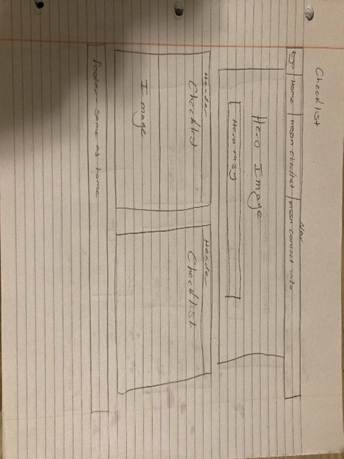 Checklist
Nav
logo | Home | moon checklist | moon contact info
Hero Image
Hero msg
Header
Checklist
Image
Header
Checklist
Footer - same as home